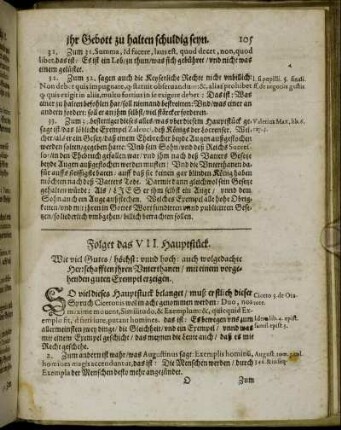 ihr Gebott zu halten schuldig seyn. 105
31. Zum 31. Summa, id facere, laus est, quod decet, non, quod
libet. das ist: Es ist ein Lob / zu thun / was sich gebühret / vnd nicht was
einem gelüstet.
32. Zum 32. sagen auch die Keyserliche Rechte nicht vnbillich:
Non debet quis impugnare, quod
quis exigit in alio, multo fortius in se exigere debet: Das ist: Was
einer zu halten befohlen hat / soll niemand bestreiten: Vnd / was einer an
andern erfordert / soll er an jhm selbst / viel stärcker erfordern.
33. Zum 33. bestettiget dieses alles / was ob von diesem Hauptstück ge-
sagt ist / das löbliche Exempel Zaleuci, deß Königs der Locrenser. Wel-
cher / als er ein Gesetz / daß einem Ehebrecher beyde Augen außgestochen
werden solten / gegeben hatte: Vnd sein Sohn / vnd deß Reichs Success-
so / in den Ehebruch gefallen war / vnd jhm nach deß Vatters Gesetz
beyde Augen außgestochen werden musten: Vnd die Vnterthanen da-
für auffs fleissigste baten / auff daß sie keinen gar blinden König haben
möchten nach deß Vatters Tode. Darmit dann gleichwol sein Gesetz
gehalten würde: Als / stieß Er jhm selbst ein Auge / vnnd dem
Sohn auch ein Auge außstechen. Welches Exempel alle hohe Obrig-
keiten / vnd jederman in Gottes Wort fundirten vnd publicirten Gese-
tzen / so liederlich vmbgehen / billich betrachten solen.
Valerius Max. lib. 6.
Folget das VII. Hauptstück.
Wie viel Gutes / höchst: vnnd hoch: auch wolgedachte
Herrschafften jhren Vnterthanen / mit einem vorge-
henden guten Exempel erzeigen.
SO viel dieses Hauptstück belanget / muß erstlich dieser
Spruch Ciceronis wol in acht genommen werden: Duo, nos
maximè movent, Similitudo, & Exemplum: &, quicquid Ex-
emplo fit, id fieri iure, putant homines. das ist: Es bewegen vns zum
allermeinsten zwey ding / die Gleichheit / vnd ein Exempel / vnnd was
mit einem Exempel geschicht / das meynen die Leute auch / daß es mit
Recht geschehe.
2. Zum andern ist wahr / was Augustinus sagt: Exemplis hominũ,
homines magis accenduntur, das ist: Die Menschen werden / durch
Exempla der Menschen desto mehr angezündet.
Cicero 3. de Ora-
tore.
O Zum